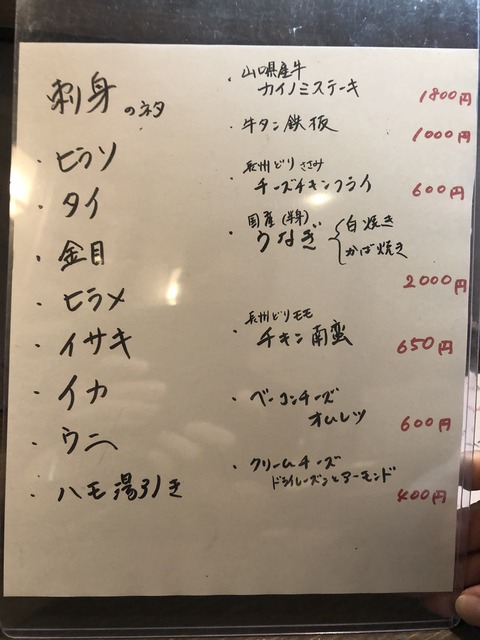 刺身のネタ
・ヒラソ
・タイ
・金目
・ヒラメ
・イサキ
・イカ
・ウニ
・ハモ湯引き
・山口県産牛
カイノミステーキ
1800円
・牛タン鉄板
1000円
長州どりささみ
・チーズチキンフライ
600円
国産(半身)
・うなぎ{白焼き
かば焼き
2000円
長州どりモモ
・チキン南蛮
650円
・ベーコンチーズ
オムレツ
600円
・クリームチーズ
ドライレーズンとアーモンド
400円